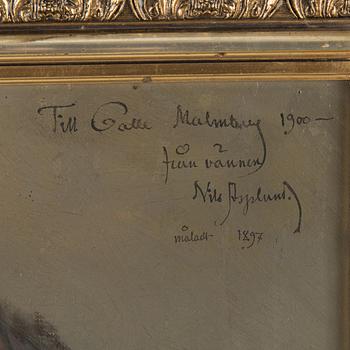 Till Calle Malmberg 1900–
från vännen
Nils Asplund.
måladt 1897